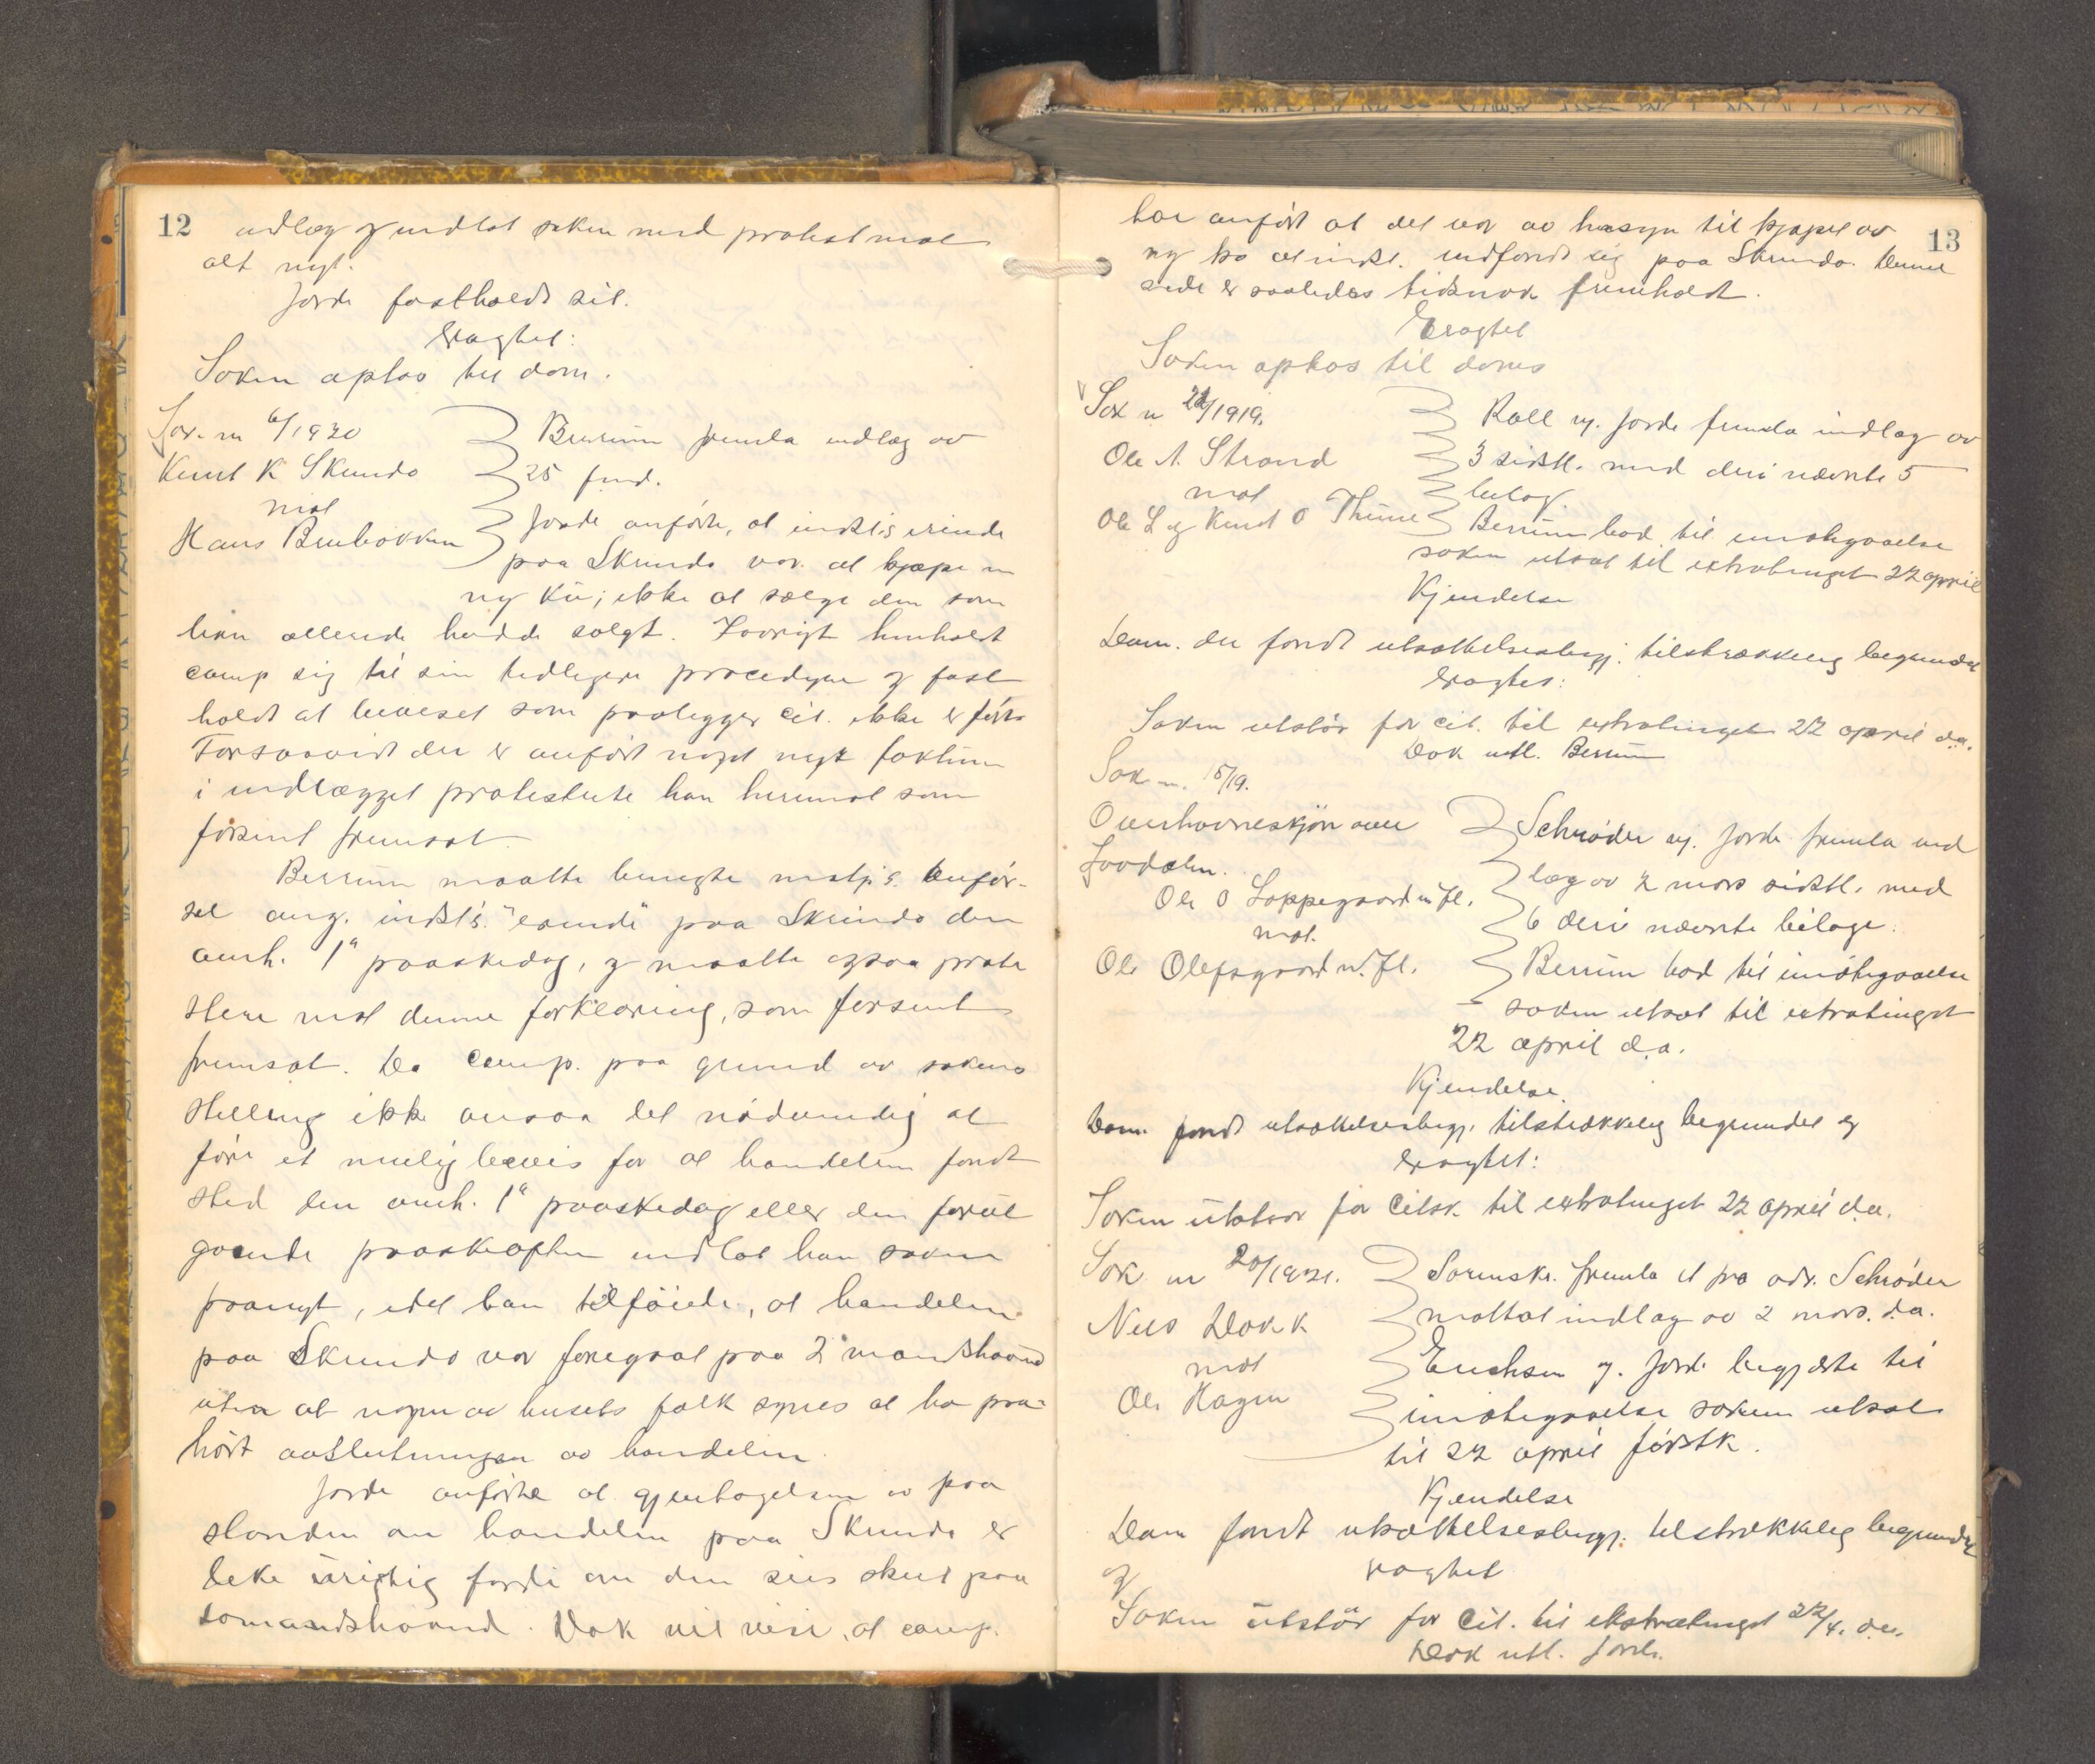 12
indlæg og indlot saken med protest mot
alt nyt.
Jorde fastholdt sit.
Eragtet:
Saken optas til dom.
Sak nr 6/1920
Knut K Skrindo
mot
Hans Brubakken
Berrum fremla indlæg av
25 febr.
Jorde anførte, at indst's erinde
paa Skrindo var at kjøpe en
ny ku; ikke at sælge den som
han allerede hadde solgt. Iøvrigt henholdt
comp sig til sin tidligere procedyre og fast
holdt at beviset som paaligger cit. ikke er ført.
Forsaavidt der er anført noget nyt faktum
i indlægget protesterte han herimot som
forsent fremsat.
Berrum maatte benegte motp's. anfør-
sel ang. indst's. "erinde" paa Skrindo den
omh. 1ste paaskedag, og maatte ogsaa prote
stere mot denne forklaring, som forsent
fremsat. Da comp. paa grund av sakens
stilling ikke ansaa det nødvendig at
føre et mulig bevis for at handelen fandt
sted den omh. 1ste paaskedag eller den forut
gaaende paaskeaften indlot han saken
paanyt, idet han tilføiede, at handelen
paa Skrindo var foregaat paa 2 mandshaand
uten at nogen av husets folk synes at ha paa-
hørt avslutningen av handelen.
Jorde anførte at gjentagelsen av paa
standen om handelen paa Skrindo er
like urigtig fordi om den sies sket paa
tomandshaand. Dok vil vise, at comp.
13
har anført at det var av hensyn til kjøpet av
ny ko at indst. indfandt sig paa Skrindo. Denne
side er saaledes tidsnok fremholdt.
Eragtet
Saken optas til doms
Sak nr 22/1919.
Ole A. Strand
mot
Ole L og Knut O Thune
Roll ved Jorde fremla indlæg av
3 sidstl. med deri nævnte 5
bilag.
Berrum bad til imøtegaaelse
saken utsat til extratinget 22 april
Kjendelse
Dom. der fandt utsættelsesbegj. tilstrækkelig begrundet
Eragtet:
Saken utstår for cit. til extratinget 22 april d.a.
Dok utl. Berrum
Sak nr. 15/19.
Overhavneskjøn over
Ole O Loppegaard m. fl.
mot.
Ole Olefsgaard m. fl.
Schrøder ved Jorde fremla ind
læg av 2 mars sidstl. med
6 deri nævnte bilage.
Berrum bad til imøtegaaelse
saken utsat til extratinget
22 april d.a.
Kjendelse.
Dom. fandt utsættelsesbegj. tilstrækkelig begrundet og
Eragtet:
Saken utstaar for citsk. til extratinget 22 april d.a.
Sak nr 20/1921.
Nils Dokk
mot
Ole Hagen
Sorenskr. fremla et fra adv. Schrøder
mottat indlæg av 2 mars. d.a.
Erichsen v. Jorde begjærte til
imøtegaaelse saken utsat
til 22 april førstk.
Kjendelse
Dom fandt utsættelsesbegj. tilstrækkelig begrundet
og
eragtet
Saken utstår for Cit. til ekstratinget 22/4. d.a.
Dok utl. Jorde.